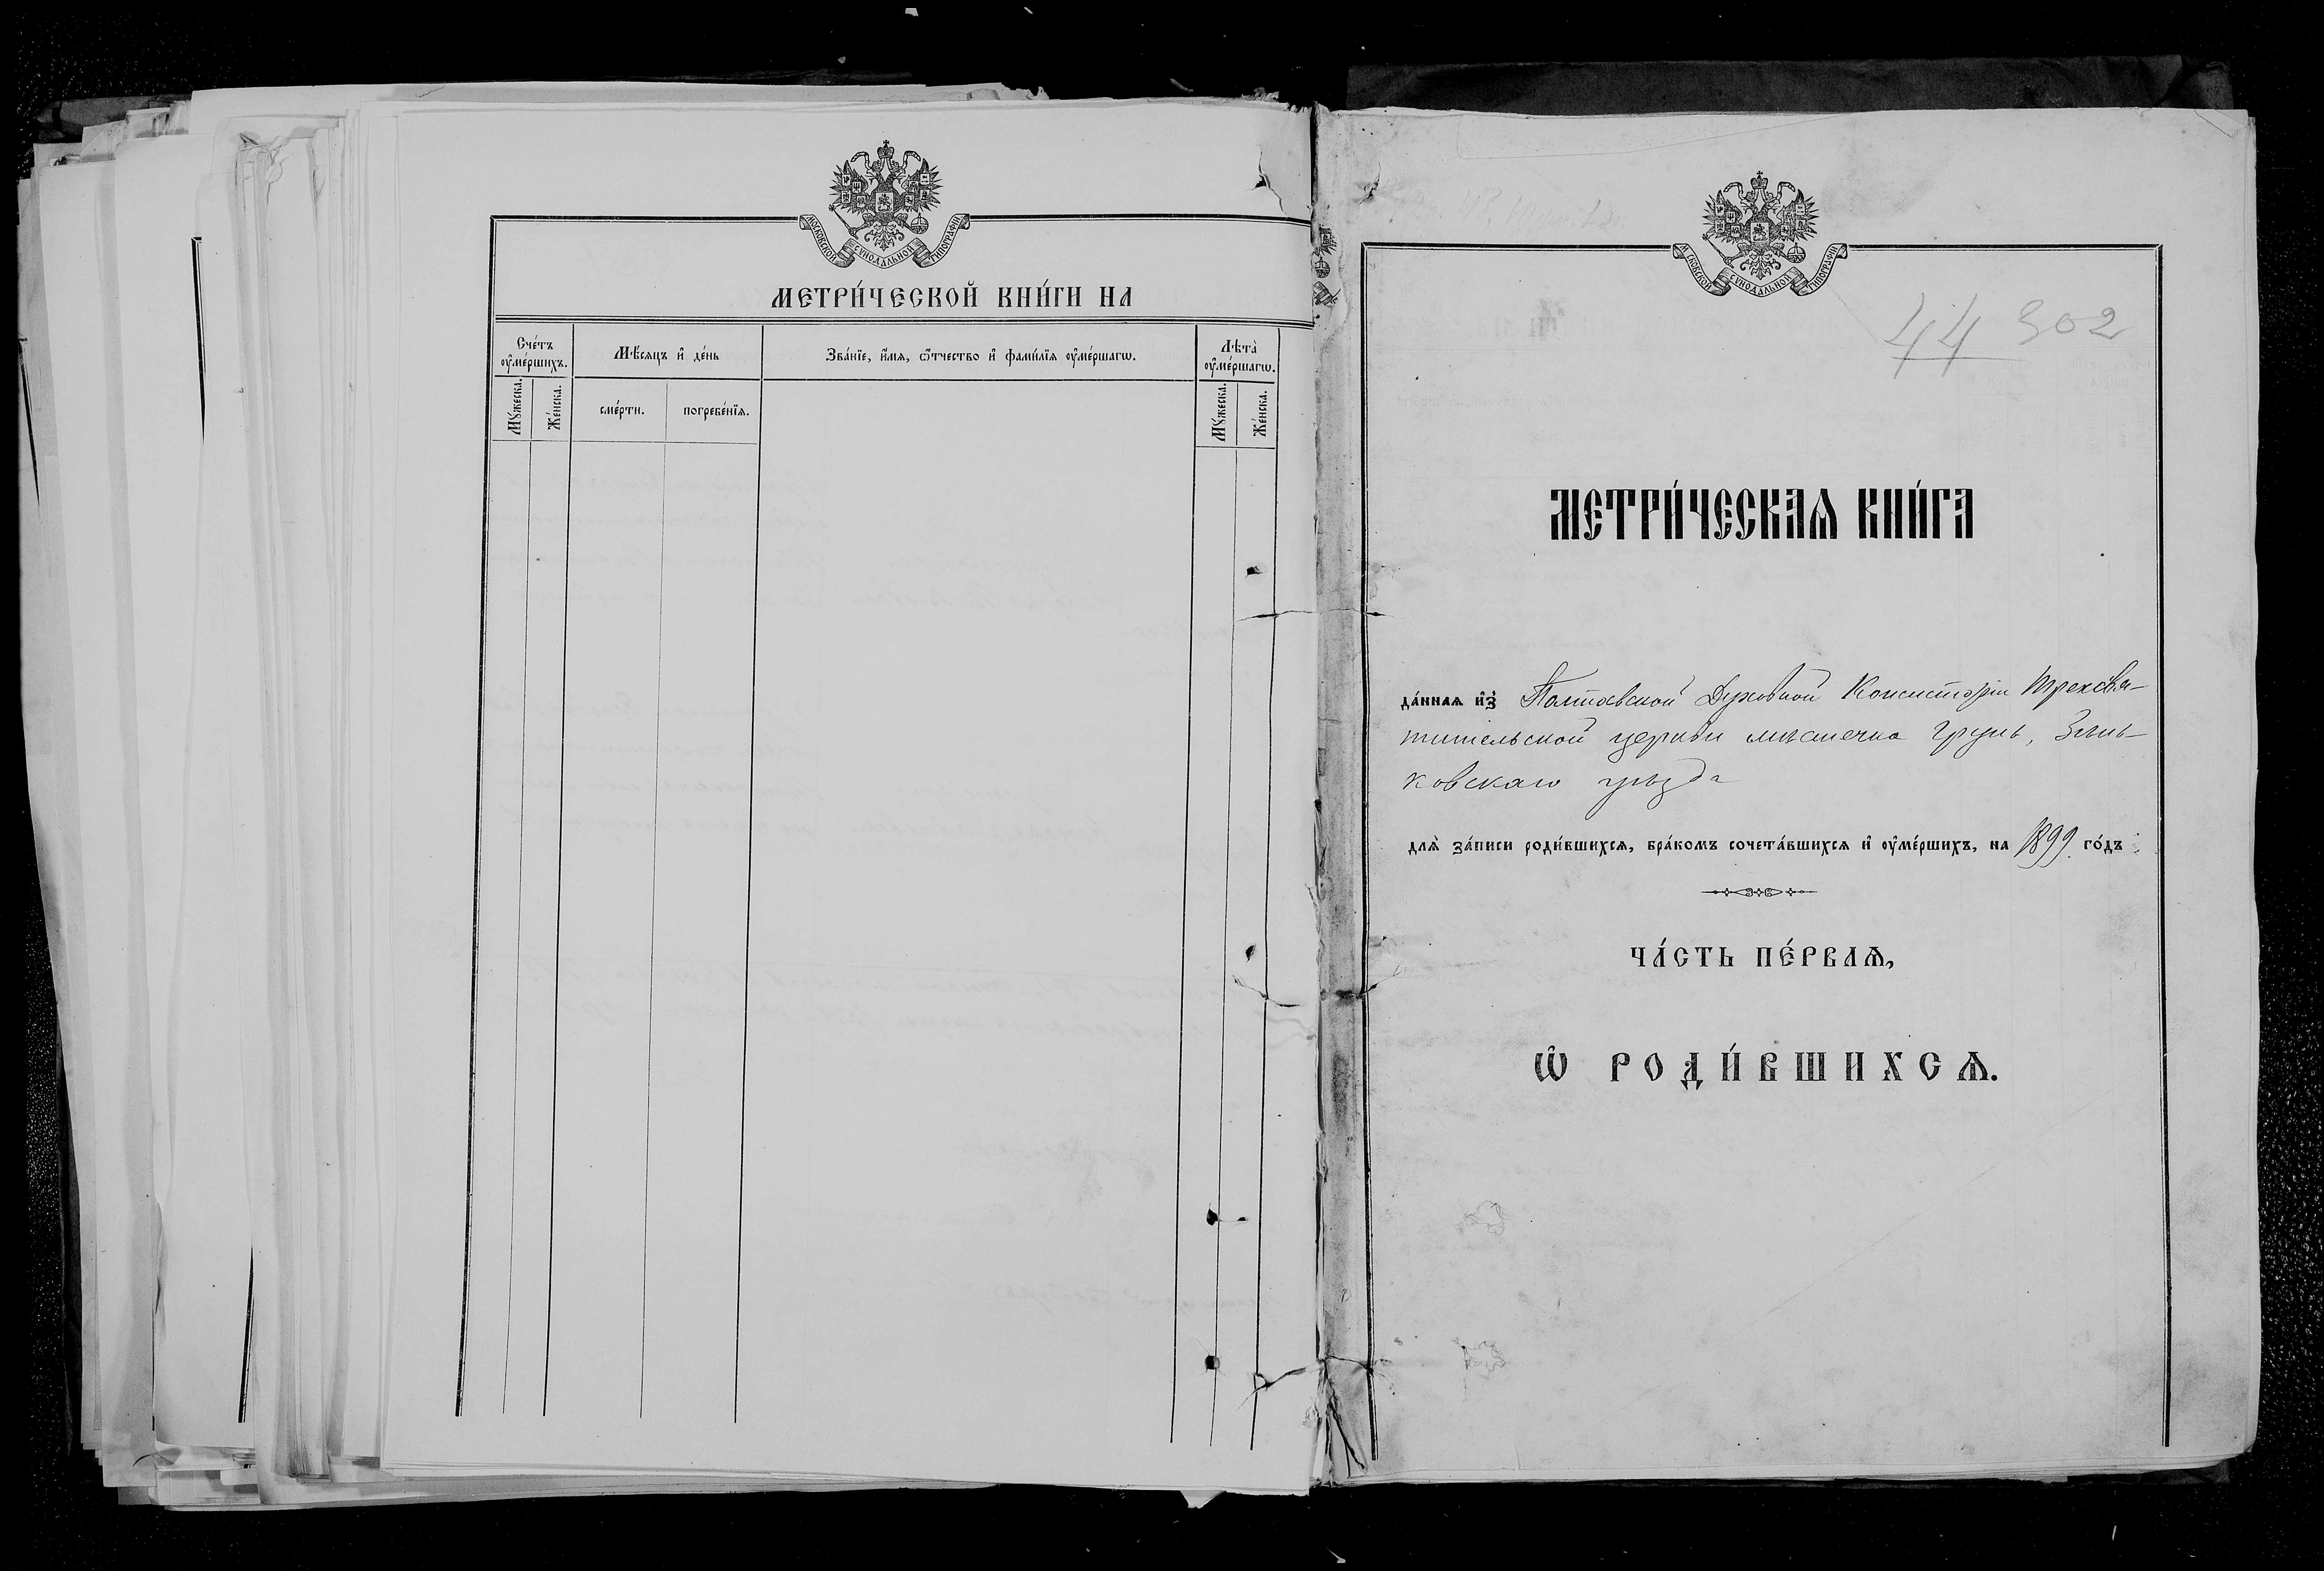 МОСКОВСКОЙ СѴНОДАЛЬНОЙ ТИПОГРАФІИ
МЕТРИ́ЧЕСКОЙ КНИ́ГИ НА
Сче́тъ ᲂу҆ме́ршихъ.
Мѣ́сяцъ и҆ де́нь
Зва́нїе, и҆́мѧ, ѻ҆́тчество и҆ фами́лїѧ ᲂу҆ме́ршагѡ.
Лѣта̀ ᲂу҆ме́ршагѡ.
Мꙋ́жеска.
Же́нска.
сме́рти.
погребе́нїѧ.
Мꙋ́жеска.
Же́нска.
МОСКОВСКОЙ СѴНОДАЛЬНОЙ ТИПОГРАФІИ
44 302
МЕТРИ́ЧЕСКАѦ КНИ́ГА
да́ннаѧ и҆з̾ Полтавской Духовной Консисторіи Трехсвя-
тительской церкви мѣстечка Грунь, Зѣнь-
ковскаго уѣзда
длѧ̀ за́писи роди́вшихсѧ, бра́комъ сочета́вшихсѧ и҆ ᲂу҆ме́ршихъ, на 1899 го́дъ
ЧА́СТЬ ПЕ́РВАѦ,
Ѽ РОДИ́ВШИХСѦ.